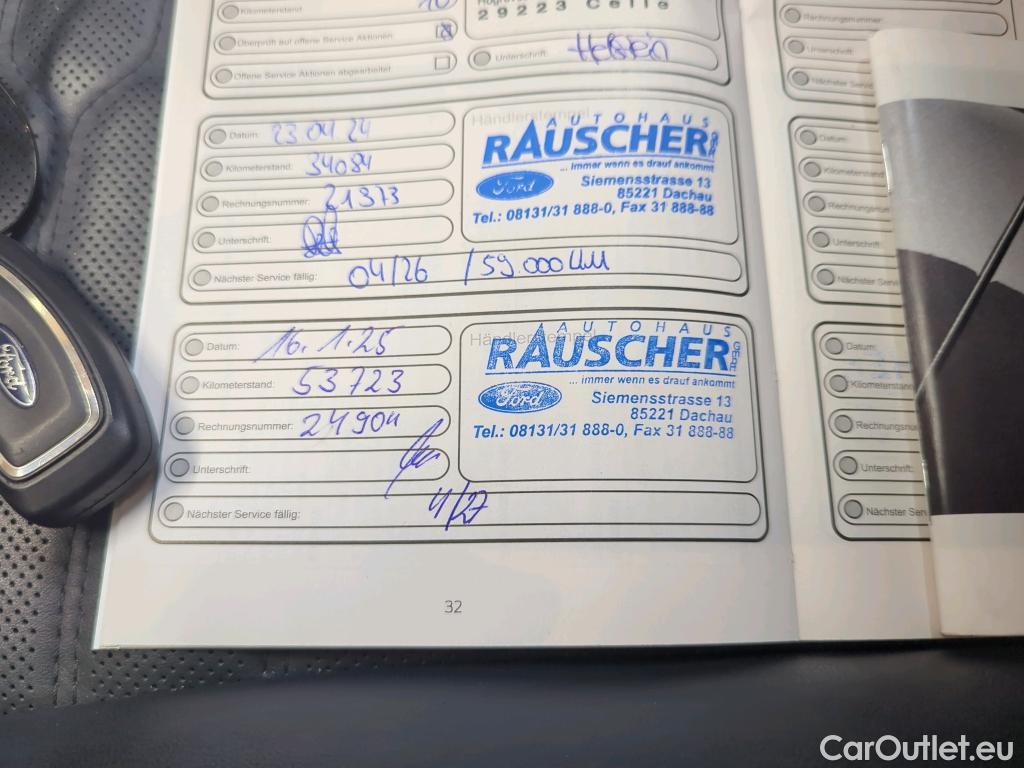 Kilometerstand:
Überprüft auf offene Service Aktionen:
Offene Service Aktionen abgearbeitet:
29223 Celle
Unterschrift:
Datum: 23 04 24
Kilometerstand: 34084
Rechnungsnummer: 21373
Unterschrift:
Nächster Service fällig: 04/26 / 59.000 KM
Händlerstempel
AUTOHAUS
RAUSCHER GmbH
... immer wenn es drauf ankommt
Ford
Siemensstrasse 13
85221 Dachau
Tel.: 08131/31 888-0, Fax 31 888-88
Datum: 16.1.25
Kilometerstand: 53723
Rechnungsnummer: 24904
Unterschrift:
Nächster Service fällig: 4/27
Händlerstempel
AUTOHAUS
RAUSCHER GmbH
... immer wenn es drauf ankommt
Ford
Siemensstrasse 13
85221 Dachau
Tel.: 08131/31 888-0, Fax 31 888-88
32
Rechnungsnummer:
Unterschrift:
Nächster Servic
Datum:
Kilometerstand
Rechnungsnum
Unterschrift:
Nächster Serv
Datum:
Kilometerstand
Rechnungsnu
Unterschrift:
Nächster Serv
Ford
CarOutlet.eu